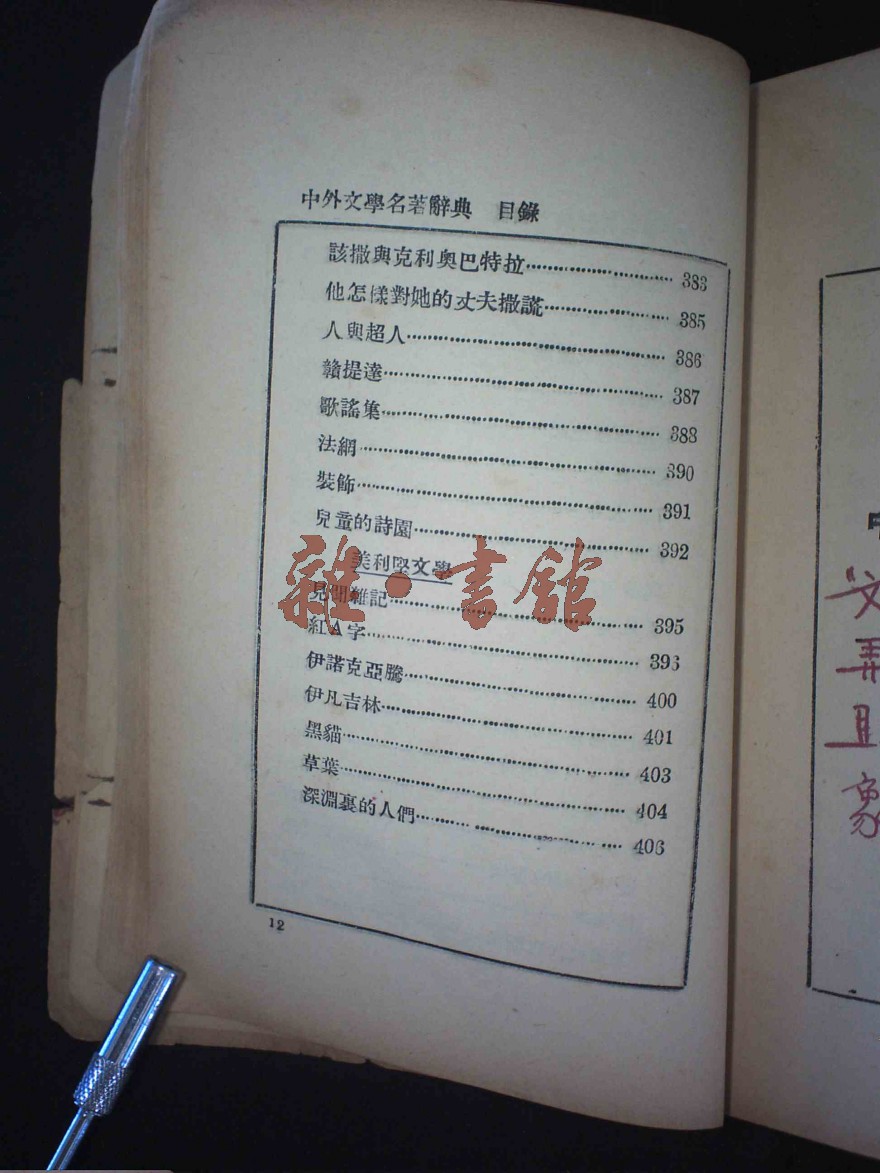 中外文學名著辭典　目錄
該撒與克利奧巴特拉……………………383
他怎樣對她的丈夫撒謊…………………385
人與超人…………………………………386
贛提達……………………………………387
歌謠集……………………………………388
法網………………………………………390
裝飾………………………………………391
兒童的詩園………………………………392
美利堅文學
見聞雜記…………………………………395
紅A字……………………………………396
伊諾克亞騰………………………………400
伊凡吉林…………………………………401
黑貓………………………………………403
草葉………………………………………404
深淵裏的人們……………………………406
12
雜·書館